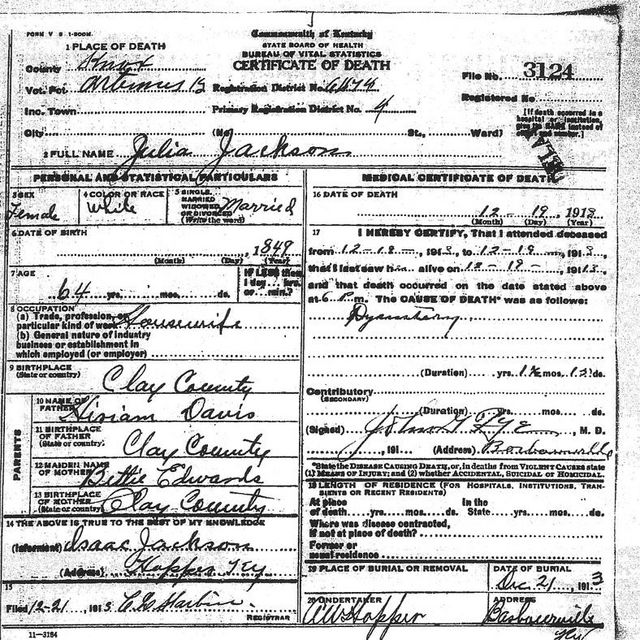 FORM V S 1-500M.
Commonwealth of Kentucky
STATE BOARD OF HEALTH
BUREAU OF VITAL STATISTICS
CERTIFICATE OF DEATH
1 PLACE OF DEATH
County Knox
Vot. Pct. Artemus Ky
Registration District No. 6474
File No. 3124
Inc. Town
Primary Registration District No. 4
Registered No
City (No St., Ward)
[If death occurred in a hospital or institution, give its NAME instead of street and number.]
2 FULL NAME Julia Jackson
PERSONAL AND STATISTICAL PARTICULARS
3 SEX Female
4 COLOR OR RACE White
5 SINGLE, MARRIED, WIDOWED, OR DIVORCED (Write the word) Married
6 DATE OF BIRTH
1849
(Month) (Day) (Year)
7 AGE
64 yrs. mos. ds.
If LESS than 1 day hrs. or min.?
8 OCCUPATION
(a) Trade, profession, or particular kind of work Housewife
(b) General nature of industry
business or establishment in
which employed (or employer)
9 BIRTHPLACE
(State or country)
Clay County
PARENTS
10 NAME OF FATHER Hiriam Davis
11 BIRTHPLACE OF FATHER (State or country) Clay County
12 MAIDEN NAME OF MOTHER Bettie Edwards
13 BIRTHPLACE OF MOTHER (State or country) Clay County
14 THE ABOVE IS TRUE TO THE BEST OF MY KNOWLEDGE
(Informant) Isaac Jackson
(Address) Hopper Ky
15
Filed 12-21, 1913
REGISTRAR
11-3184
MEDICAL CERTIFICATE OF DEATH
16 DATE OF DEATH
12 - 19 - 1913
(Month) (Day) (Year)
17 I HEREBY CERTIFY, That I attended deceased
from 12-18-, 1913, to 12-19-, 1913,
that I last saw h alive on 12-19-, 1913,
and that death occurred on the date stated above
at 6 P.m. The CAUSE OF DEATH* was as follows:
(Duration) yrs. mos. ds.
Contributory
(SECONDARY)
(Duration) yrs. mos. ds.
(Signed) M. D.
, 191 (Address) Barbourville
*State the DISEASE CAUSING DEATH, or, in deaths from VIOLENT CAUSES state
(1) MEANS OF INJURY; and (2) whether ACCIDENTAL, SUICIDAL OR HOMICIDAL.
18 LENGTH OF RESIDENCE (FOR HOSPITALS, INSTITUTIONS, TRANSIENTS OR RECENT RESIDENTS)
At place of death yrs. mos. ds. In the State yrs. mos. ds.
Where was disease contracted,
if not at place of death?
Former or
usual residence
19 PLACE OF BURIAL OR REMOVAL
DATE OF BURIAL
Dec 21, 1913
20 UNDERTAKER
AW Hopper
ADDRESS
Barbourville Ky